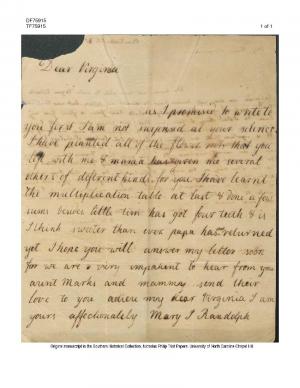 DF75915
TF75915
1 of 1
Dear Virginia
as I promised to write to
you first I am not surprised at your silence
I have planted all of the flower
you
left with me & mama has given me several
others of different kinds for you I have learnt
the multiplication table at last & done a few
sums besides little
has got four teeth & is
I think sweeter than ever papa has returned
yet I hope you will answer my letter soon
for we are very impatient to hear from you
aunt Marks and mammy send their
love to you adieu my dear Virginia I am
yours affectionately Mary J Randolph
Original manuscript in the Southern Historical Collection, Nicholas Philip Trist Papers, University of North Carolina-Chapel Hill